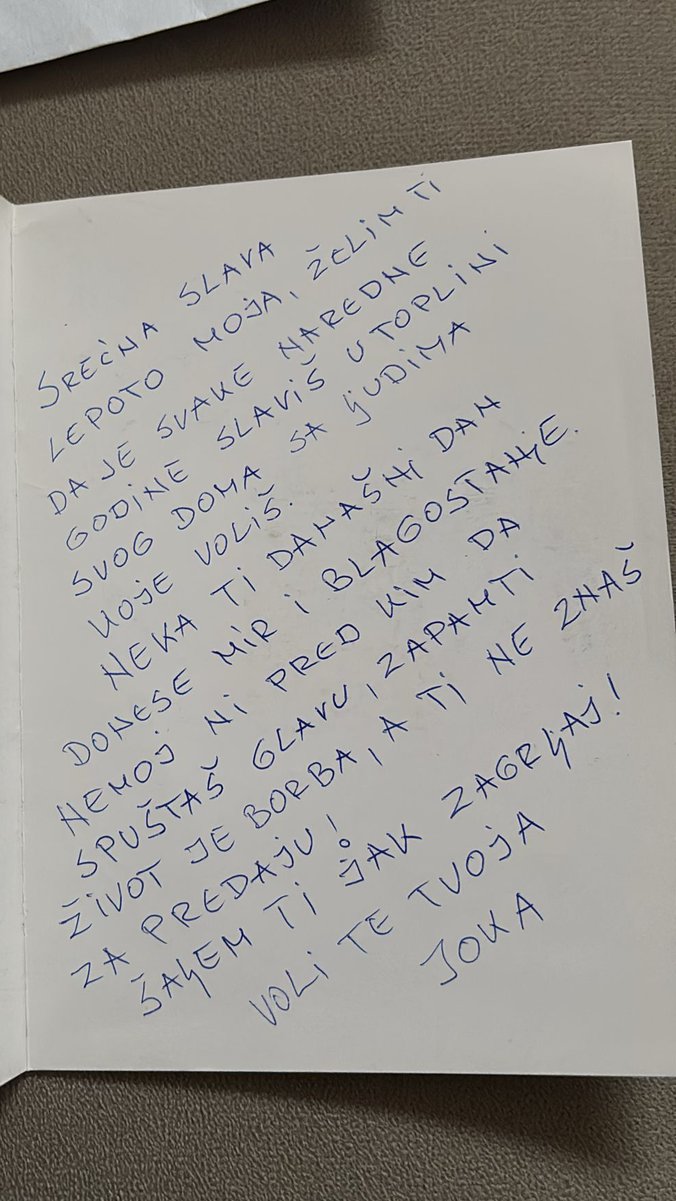 SREĆNA SLAVA
LEPOTO MOJA, ŽELIM TI
DA JE SVAKE NAREDNE
GODINE SLAVIŠ U TOPLINI
SVOG DOMA SA LJUDIMA
KOJE VOLIŠ.
NEKA TI DANAŠNI DAN
DONESE MIR I BLAGOSTANJE.
NEMOJ NI PRED KIM DA
SPUŠTAŠ GLAVU, ZAPAMTI
ŽIVOT JE BORBA, A TI NE ZNAŠ
ZA PREDAJU!
ŠALJEM TI JAK ZAGRLJAJ!
VOLI TE TVOJA
JOKA